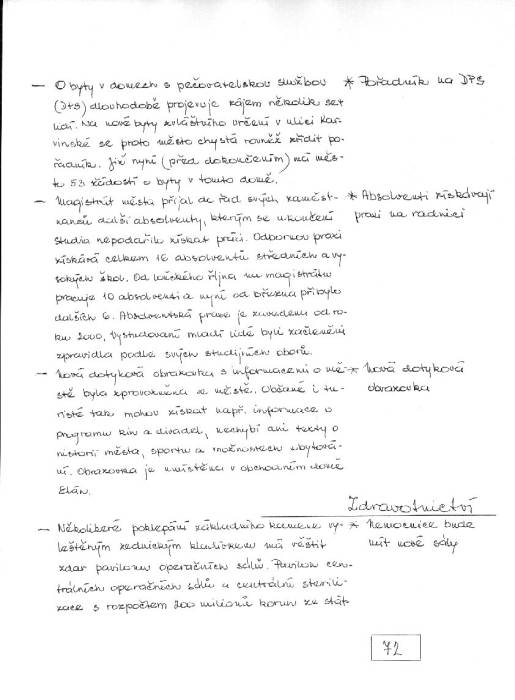 — O byty v domech s pečovatelskou službou
(DPS) dlouhodobě projevuje zájem několik set
lidí. Na nové byty zvláštního určení v ulici Kar-
vinské se proto město chystá rovněž zřídit po-
řadník. Již nyní (před dokončením) má měs-
to 53 žádostí o byty v tomto domě.
* Pořadník na DPS
— Magistrát města přijal do řad svých zaměst-
nanců další absolventy, kterým se ukončení
studia nepodařilo získat práci. Odbornou praxi
získává celkem 16 absolventů středních a vy-
sokých škol. Od loňského října na magistrátu
pracuje 10 absolventů a nyní od března přibylo
dalších 6. Absolventská praxe je zavedena od ro-
ku 2000, vystudovaní mladí lidé byli začleněni
zpravidla podle svých studijních oborů.
* Absolventi získávají
praxi na radnici
— Nová dotyková obrazovka s informacemi o mě-
stě byla zprovozněna ve městě. Občané i tu-
risté tak mohou získat např. informace o
programu kin a divadel, nechybí ani texty o
historii města, sportu a možnostech ubytová-
ní. Obrazovka je umístěna v obchodním domě
Elán.
* Nová dotyková
obrazovka
Zdravotnictví
— Několikeré poklepání základního kamene vy-
leštěným zednickým kladívkem má věštit
zdar pavilonu operačních sálů. Pavilon cen-
trálních operačních sálů a centrální sterili-
zace s rozpočtem 200 milionů korun ze stát-
* Nemocnice bude
mít nové sály
72